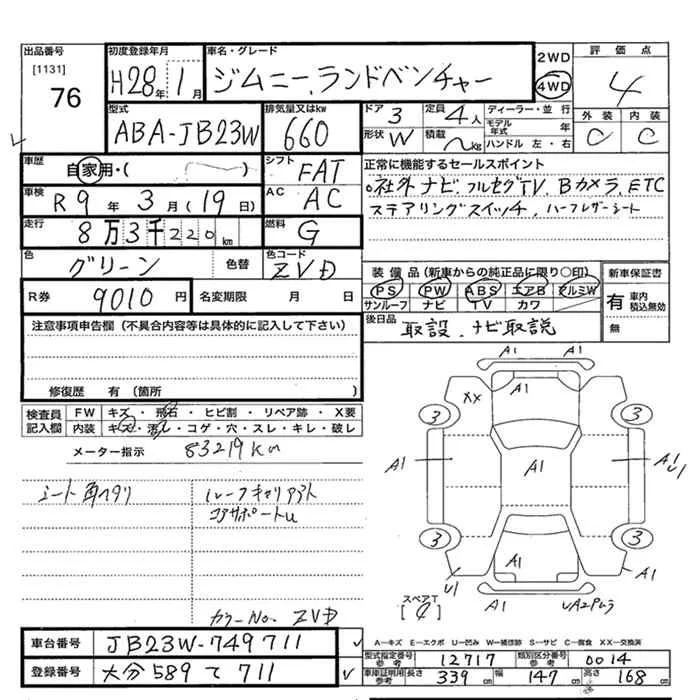 出品番号
[1131]
76
初度登録年月
H28年 1月
車名・グレード
ジムニー.ランドベンチャー
2WD
4WD
評価点
4
外装 内装
C C
型式
ABA-JB23W
排気量又はkw
660
ドア 3
定員 4人
形状 W
積載 kg
ディーラー・並行
モデル年式 年
ハンドル 左・右
車歴
自家用・( )
シフト
FAT
車検
R9年 3月 (19日)
AC
AC
走行
8万3千220km
燃料
G
色
グリーン
色替
色コード
ZVD
R券 9010円
名変期限 月 日
正常に機能するセールスポイント
○社外ナビ.フルセグTV、Bカメラ、ETC
ステアリングスイッチ、ハーフレザーシート
装備品(新車からの純正品に限り○印)
PS PW ABS エアB アルミW
サンルーフ ナビ TV カワ
新車保証書
有 車内積込無効
無
後日品
取設、ナビ取説
注意事項申告欄(不具合内容等は具体的に記入して下さい)
修復歴 有(箇所 )
検査員記入欄
FW キズ・飛石・ヒビ割・リペア跡・X要
内装 キズ・汚れ・コゲ・穴・スレ・キレ・破レ
メーター指示 83219km
シート角ヘタリ
ルーフキャリアアト
コアサポートU
カラーNo. ZVD
A1 A1
A1
XX
3 3
A1 A1 A1 U1
3 3
A1
U1 A1
スペアT
[4]
A1 UA2PLラ
車台番号 JB23W-749711
登録番号 大分 589 て 711
A―キズ E―エクボ U―凹み W―補修跡 S―サビ C―腐食 XX―交換済
型式指定番号 参考 12717
類別区分番号 参考 0014
車庫証明用 参考 長さ 339cm 幅 147cm 高さ 168cm